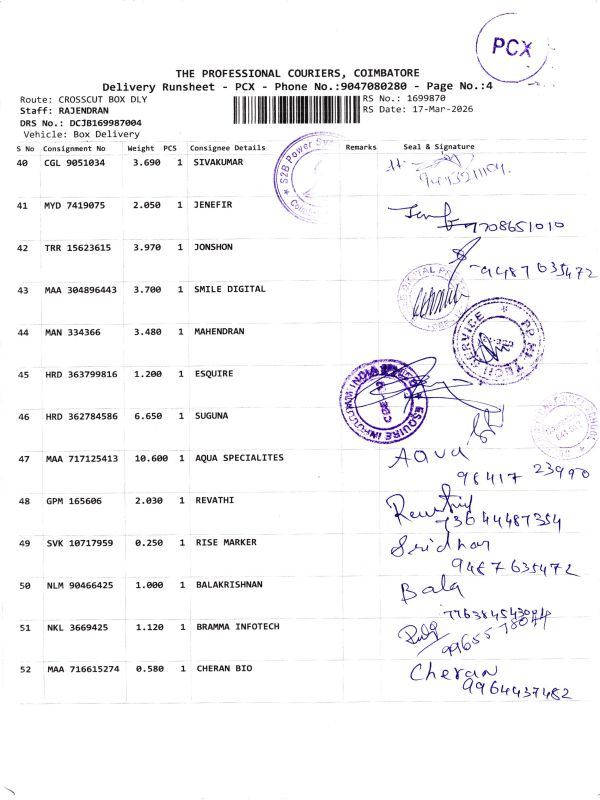 PCX
THE PROFESSIONAL COURIERS, COIMBATORE
Delivery Runsheet - PCX - Phone No.:9047080280 - Page No.:4
Route: CROSSCUT BOX DLY
RS No.: 1699870
Staff: RAJENDRAN
RS Date: 17-Mar-2026
DRS No.: DCJB169987004
Vehicle: Box Delivery
S No Consignment No Weight PCS Consignee Details Remarks Seal & Signature
40 CGL 9051034 3.690 1 SIVAKUMAR
41 MYD 7419075 2.050 1 JENEFIR 7708651010
42 TRR 15623615 3.970 1 JONSHON 9487635472
43 MAA 304896443 3.700 1 SMILE DIGITAL
44 MAN 334366 3.480 1 MAHENDRAN
45 HRD 363799816 1.200 1 ESQUIRE
46 HRD 362784586 6.650 1 SUGUNA
47 MAA 717125413 10.600 1 AQUA SPECIALITES Aqua
96417 23990
48 GPM 165606 2.030 1 REVATHI
73644487354
49 SVK 10717959 0.250 1 RISE MARKER Sridhar
9487635472
50 NLM 90466425 1.000 1 BALAKRISHNAN Bala
51 NKL 3669425 1.120 1 BRAMMA INFOTECH
52 MAA 716615274 0.580 1 CHERAN BIO Cheran
9964437482